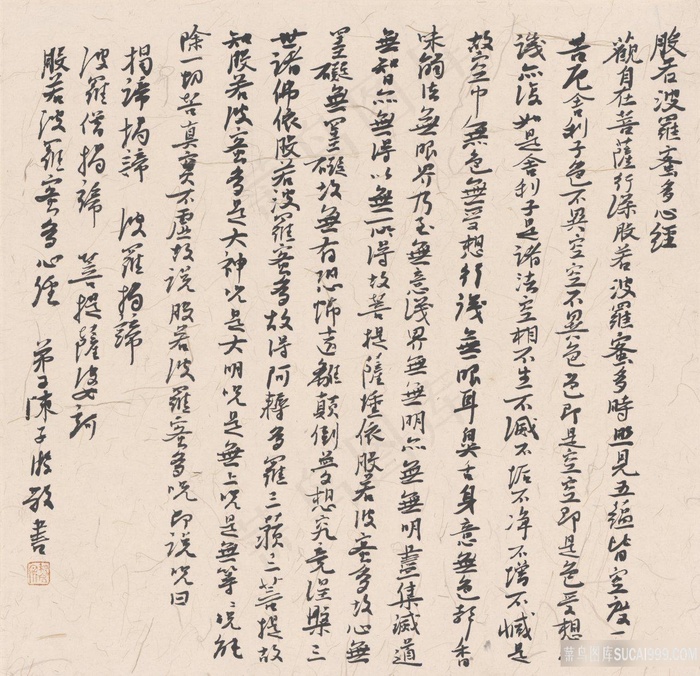 般若波羅蜜多心經
觀自在菩薩行深般若波羅蜜多時照見五蘊皆空度一
苦厄舍利子色不異空空不異色色即是空空即是色受想
識亦復如是舍利子是諸法空相不生不滅不垢不淨不增不減是
故空中無色無受想行識無眼耳鼻舌身意無色聲香
味觸法無眼界乃至無意識界無無明亦無無明盡集滅道
無智亦無得以無所得故菩提薩埵依般若波羅蜜多故心無
罣礙無罣礙故無有恐怖遠離顛倒夢想究竟涅槃三
世諸佛依般若波羅蜜多故得阿耨多羅三藐三菩提故
知般若波羅蜜多是大神咒是大明咒是無上咒是無等等咒能
除一切苦真實不虛故說般若波羅蜜多咒即說咒曰
揭諦揭諦 波羅揭諦
波羅僧揭諦 菩提薩婆訶
般若波羅蜜多心經 弟子陳子
敬書
菜鸟图库SUCAI999.COM